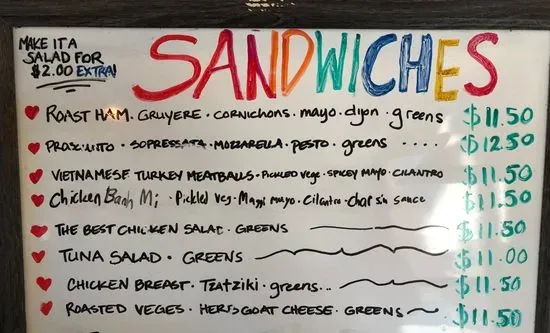 MAKE IT A
SALAD FOR
$2.00 EXTRA!
SANDWICHES
ROAST HAM. GRUYERE. CORNICHONS. mayo. dijon. greens $11.50
PROSCIUTTO. SOPRESSATA. MOZZARELLA. PESTO. greens .... $12.50
VIETNAMESE TURKEY MEATBALLS. PICKLED Vege. SPICEY MAYO. CILANTRO $11.50
Chicken Banh Mi. Pickled Veg. Maggi mayo. Cilantro. char siu sauce $11.50
THE BEST CHICKEN SALAD. GREENS $11.50
TUNA SALAD. GREENS $11.00
CHICKEN BREAST. Tzatziki. greens... $11.50
ROASTED VEGES. HERB GOAT CHEESE. GREENS $11.50